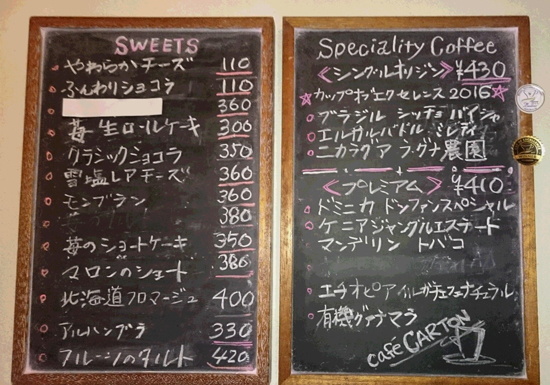 SWEETS
やわらかチーズ 110
ふんわりショコラ 110
360
苺生ロールケーキ 300
クラシックショコラ 350
雪塩レアチーズ 360
モンブラン 360
380
苺のショートケーキ 350
マロンのショート 380
北海道フロマージュ 400
アルハンブラ 330
フルーツのタルト 420
Speciality Coffee
〈シングルオリジン〉 ¥430
☆カップオブエクセレンス2016☆
ブラジル シッチョバイシャ
エルサルバドル ミレディ
ニカラグア ラグナ農園
〈プレミアム〉 ¥410
ドミニカ ドンファンスペシャル
ケニアジャングルエステート
マンデリン トバコ
エチオピア ナチュラル
有機グアテマラ
café CARTON